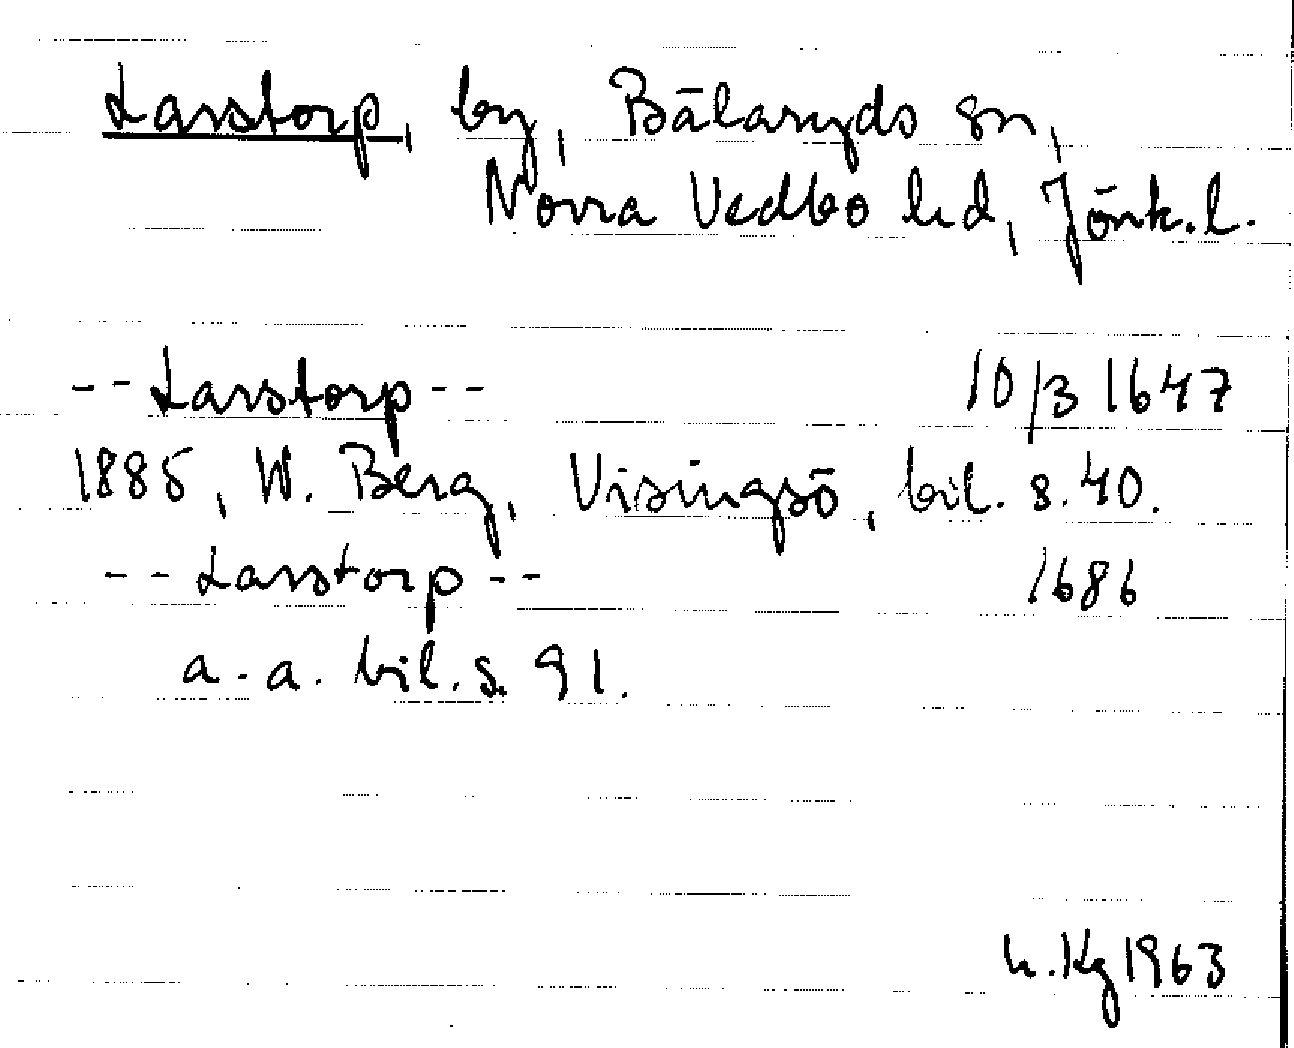 Larstorp, by, Bälaryds sn,
Norra Vedbo hd, Jönk.l.
-- Larstorp --   10/3 1647
1885, W. Berg, Visingsö, bil. s. 40.
-- Larstorp --   1686
a. a. bil. s. 91.
h. Kg 1963